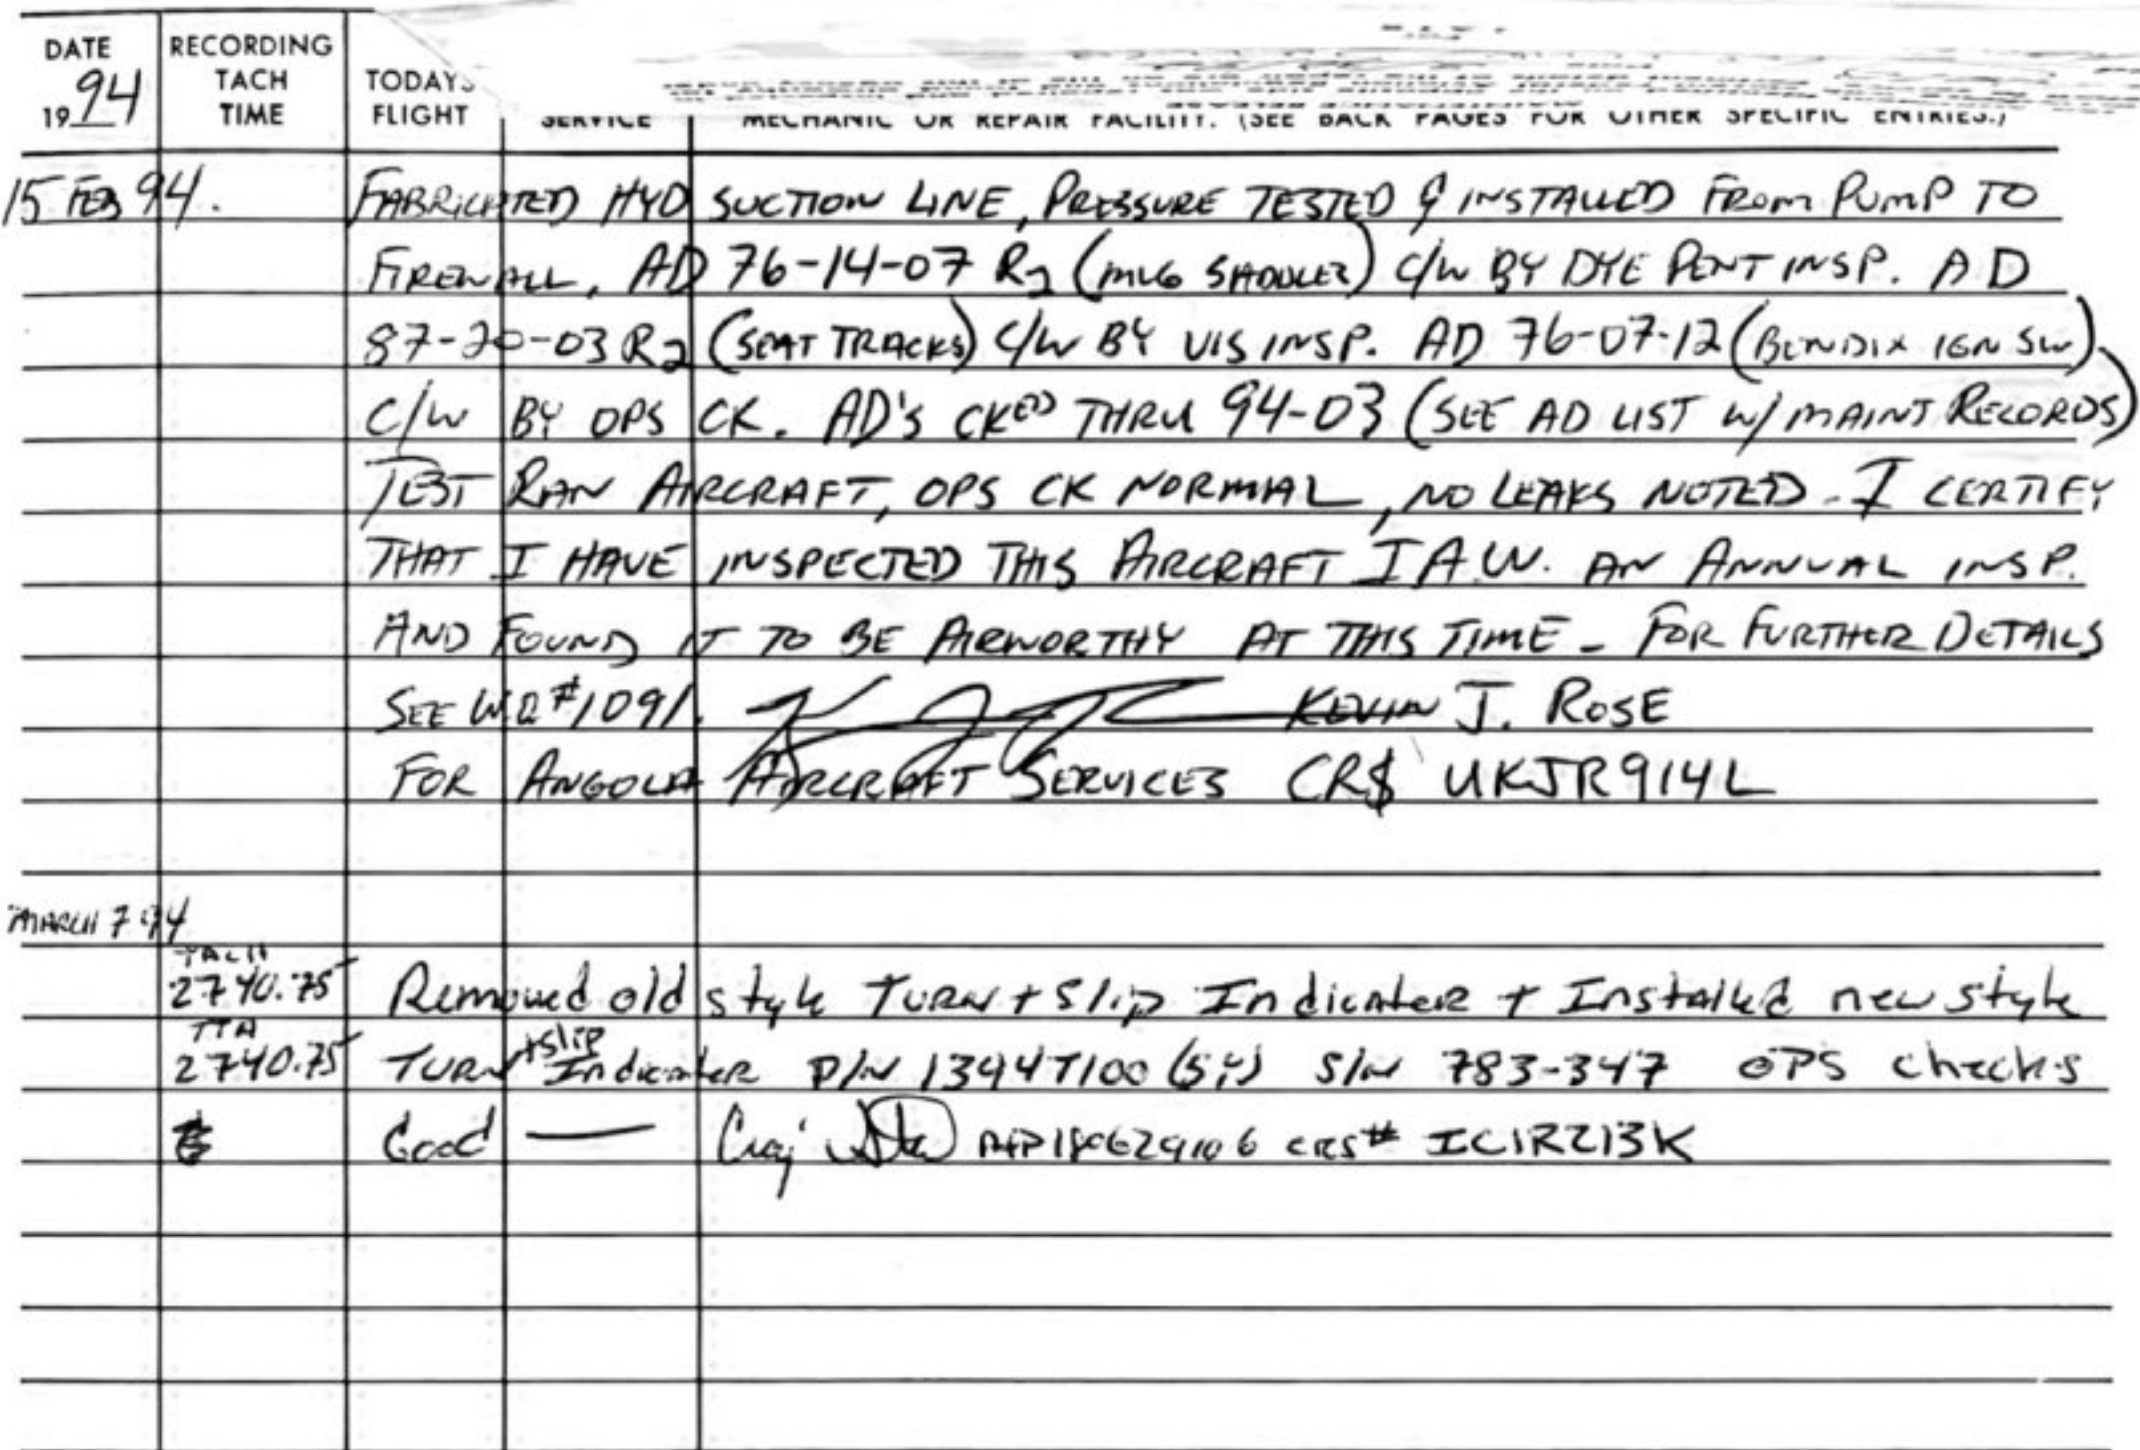 DATE
1994
RECORDING
TACH
TIME
TODAY'S
FLIGHT
SERVICE
MECHANIC OR REPAIR FACILITY. (SEE BACK PAGES FOR OTHER SPECIFIC ENTRIES.)
15 FEB 94. FABRICATED HYD SUCTION LINE, PRESSURE TESTED & INSTALLED FROM PUMP TO
FIREWALL. AD 76-14-07 R2 (MLG SADDLES) C/W BY DYE PENT INSP. AD
87-20-03 R2 (SEAT TRACKS) C/W BY VIS INSP. AD 76-07-12 (BENDIX IGN SW)
C/W BY OPS CK. AD'S CKED THRU 94-03 (SEE AD LIST W/ MAINT RECORDS)
TEST RAN AIRCRAFT, OPS CK NORMAL, NO LEAKS NOTED - I CERTIFY
THAT I HAVE INSPECTED THIS AIRCRAFT I.A.W. AN ANNUAL INSP.
AND FOUND IT TO BE AIRWORTHY AT THIS TIME - FOR FURTHER DETAILS
SEE WO #1091. KEVIN J. ROSE
FOR ANGOLA AIRCRAFT SERVICES CRS UKJR914L
MARCH 7 94
TACH
2740.75 Removed old style TURN + Slip Indicater + Installed new style
TTA
2740.75 TURN + Slip Indicater P/N 1394T100 (5Y) S/N 783-347 OPS checks
Good — Craig CRS# IC1R213K